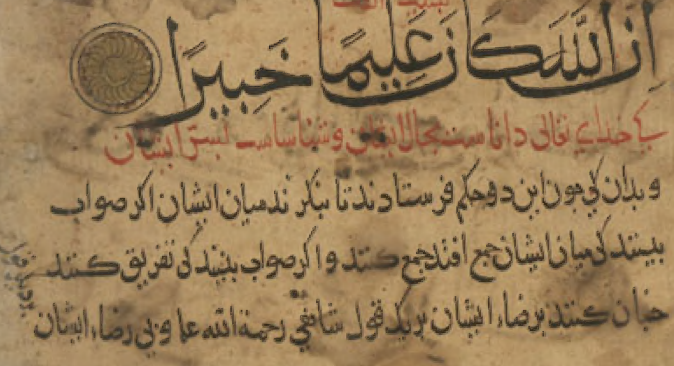 اِنَّ اللّٰهَ كَانَ عَلِيمًا خَبِيرًا
كى خداى تعالى داناست بحال ايشان وشناساست بسر ايشان
و بدان كى جون اين دو حكم فرستادند تا بنكرند ميان ايشان اكر صواب
بينند كى ميان ايشان جمع افتد جمع كنند و اكر صواب بينند كى تفريق كنند
جنان كنند برضاء ايشان بريك قول شافعى رحمة الله عليه و بى رضاء ايشان